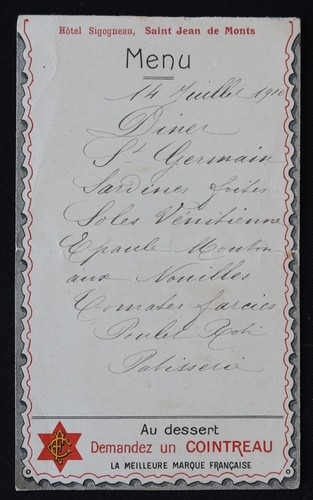 Hôtel Sigogneau, Saint Jean de Monts
Menu
14 Juillet 1910
Diner
St Germain
Sardines frites
Soles Vénitienne
Epaule Mouton
aux Nouilles
Tomates farcies
Poulet Roti
Patisserie
Au dessert
Demandez un COINTREAU
LA MEILLEURE MARQUE FRANÇAISE